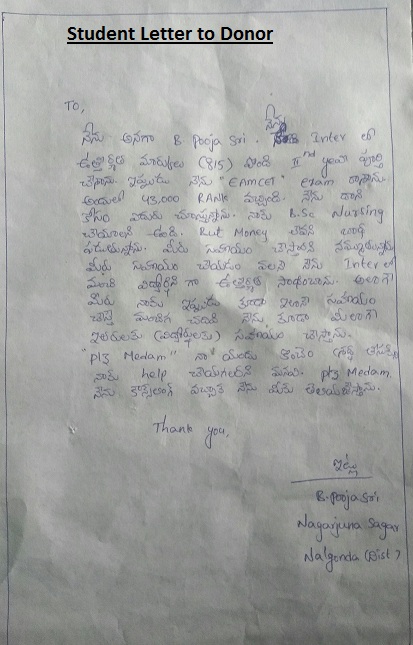 Student Letter to Donor
To,
నేను
నేను అనగా B Pooja Sri. Inter లో
ఉత్తీర్ణత మార్కులు (815) పొంది IInd year పూర్తి
చేసాను. ఇప్పుడు నేను "EAMCET" exam రాసాను.
అందులో 43,000 RANK వచ్చింది. నేను దాని
కోసం ఎదురు చూస్తున్నాను. నాకు B.Sc Nursing
చేయాలని ఉంది. But Money లేదని బాధ
పడుతున్నాను. మీరు సహాయం చేస్తారని నమ్ముతున్నాను
మీరు సహాయం చేయడం వలన నేను Inter లో
మంచి విద్యార్థిని గా ఉత్తీర్ణత సాధించాను. అలాగే
మీరు నాకు ఇప్పుడు కూడా ఇలాగే సహాయం
చేస్తే మంచిగ చదివి నేను కూడా మీలాగే
ఇతరులకు (విద్యార్థులకు) సహాయం చేస్తాను.
"plz Medam" నా యందు కొంచెం శ్రద్ధ
నాకు help చేయగలరని మనవి. plz Medam
నేను కౌన్సిలింగ్ వచ్చాక నేను మీకు తెలియజేస్తాను.
Thank you,
ఇట్లు
B. Pooja Sri
Nagarjuna Sagar
Nalgonda (Dist)